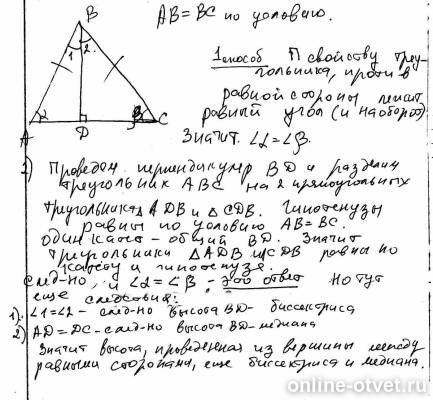 B
AB = BC по условию.
1 2
1 способ П свойству треу-
гольника, против
равной стороны лежит
равный угол (и наоборот)
Значит ∠α = ∠β.
A α D β C
2) Проведем перпендикуляр BD и разделим
треугольник ABC на 2 прямоугольных
треугольника △ ADB и △ CDB. Гипотенузы
равны по условию AB = BC.
один катет - общий BD. Значит
треугольники △ADB и △CDB равны по
катету и гипотенузе.
след-но, и ∠α = ∠β - это ответ Но тут
еще следствия:
1) ∠1=∠2 - след-но высота BD - биссектриса
2) AD = DC - след-но высота BD - медиана
Значит высота, проведенная из вершины между
равными сторонами, еще биссектриса и медиана.
online-otvet.ru